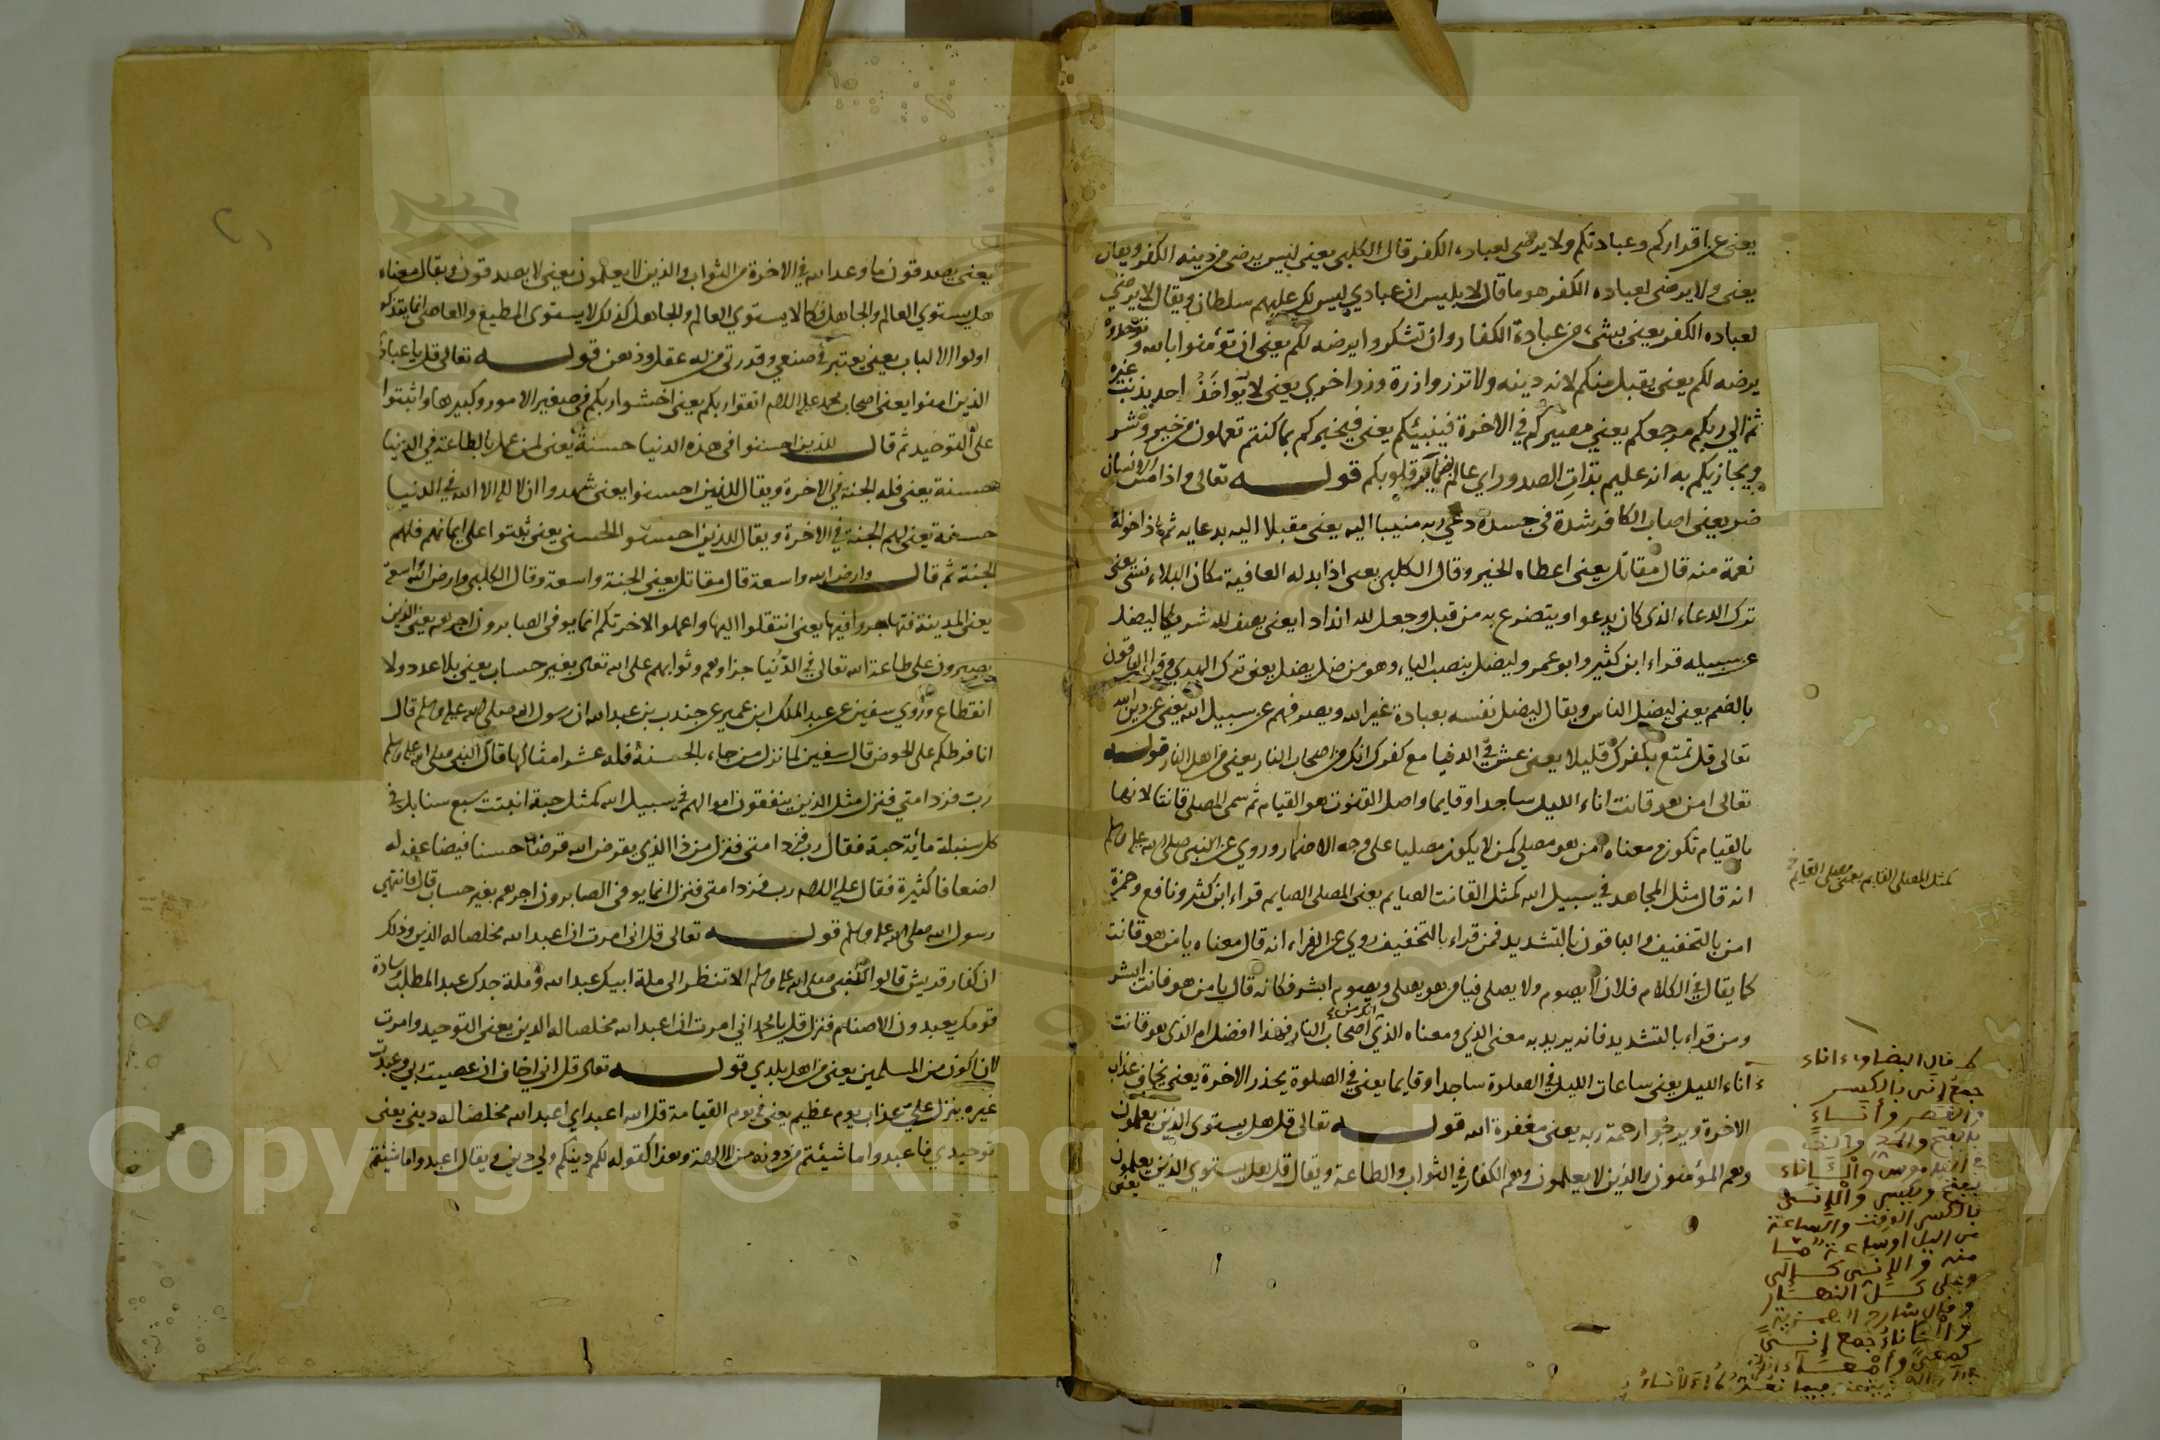 يعنى عن اقراركم وعبادتكم ولا يرضى لعباده الكفر قال الكلبى يعنى ليس يرضى من دينه الكفر ويقال
يعنى ولا يرضى لعباده الكفر هو ما قال لابليس ان عبادي ليس لك عليهم سلطان ويقال لا يرضى
لعباده الكفر يعنى بشىء من عبادة الكفار وان تشكروا يرضه لكم يعنى ان تؤمنوا بالله وتوحدوه
يرضه لكم يعنى يقبل منكم لانه دينه ولا تزر وازرة وزر اخرى يعنى لا يؤاخذ احد بذنب غيره
ثم الى ربكم مرجعكم يعني مصيركم في الاخرة فينبئكم يعنى فيخبركم بما كنتم تعملون من خير وشر
ويجازيكم به انه عليم بذات الصدور اي عالم بما في قلوبكم قوله تعالى واذا مس الانسان
ضر يعنى اصاب الكافر شدة في جسده دعى ربه منيبا اليه يعنى مقبلا اليه بدعايه ثم اذا خوله
نعمة منه قال مقاتل يعنى اعطاه الخير وقال الكلبى يعنى اذا بدله العافية مكان البلاء نسى يعنى
ترك الدعاء الذى كان يدعو او يتضرع به من قبل وجعل لله اندادا يعنى يصف لله شريكا ليضل
عن سبيله قراء ابن كثير وابو عمرو ليضل بنصب الياء وهو من ضل يضل يعنى ترك الهدي وقرا الباقون
بالضم يعنى ليضل الناس ويقال ليضل نفسه بعبادة غير الله ويصرفهم عن سبيل الله يعنى عن دين الله
تعالى قل تمتع بكفرك قليلا يعنى عش في الدنيا مع كفرك انك من اصحاب النار يعنى من اهل النار قوله
تعالى امن هو قانت اناء الليل ساجدا وقايما واصل القنوت هو القيام ثم سمى المصلى قانتا لانها
بالقيام تكون ومعناه امن هو مصلى كمن لا يكون مصليا على وجه الاضمار وروي عن النبى صلى الله عليه وسلم
انه قال مثل المجاهد في سبيل الله كمثل القانت الصايم يعنى المصلى الصايم قراء ابن كثير ونافع وحمزة
امن بالتخفيف والباقون بالتشديد فمن قراء بالتخفيف روي عن الفراء انه قال معناه يا من هو قانت
كما يقال في الكلام فلان لا يصوم ولا يصلى فيا من هو يصلى ويصوم ابشر فكانه قال يا من هو قانت ابشر
ومن قراء بالتشديد فانه يريد به معنى الذي ومعناه الذي من اصحاب النار فهذا افضل ام الذى هو قانت
آناء الليل يعنى ساعات الليل في الصلوة ساجدا وقايما يعنى في الصلوة يحذر الاخرة يعنى يخاف عذاب
الاخرة ويرجوا رحمة ربه يعنى مغفرة الله قوله تعالى قل هل يستوى الذين يعلمون
وهم المؤمنون والذين لا يعلمون وهم الكفار في الثواب والطاعة ويقال قل هل يستوي الذين يعلمون
يعنى
كمثل المصلى القايم يعنى مصلى القايم
قال البيضاوى اناء
جمع إنى بالكسر
والقصر وأناء
بالفتح والمد
بالكسر الوقت والساعة
من الليل او ساعة ما
منه والإنى كإلى
وعلى كل النهار
وقال شارح الهمزية
والآناء جمع إنى
يعنى يصدقون ما وعد الله في الاخرة من الثواب والذين لا يعلمون يعنى لا يصدقون ويقال معناه
هل يستوي العالم والجاهل فكما لا يستوي العالم والجاهل كذلك لا يستوى المطيع والعاصى انما يتذكر
اولوا الالباب يعنى يعتبر في صنعي وقدرتى من له عقل وذهن قوله تعالى قل يا عبادي
الذين امنوا يعنى اصحاب محمد عليه السلام اتقوا ربكم يعنى اخشوا ربكم في صغير الامور وكبيرها واثبتوا
على التوحيد ثم قال للذين احسنوا في هذه الدنيا حسنة يعنى لمن عمل بالطاعة في الدنيا
حسنة يعنى فله الجنة في الاخرة ويقال للذين احسنوا يعنى شهدوا ان لا اله الا الله في الدنيا
حسنة يعنى لهم الجنة في الاخرة ويقال للذين احسنوا الحسنى يعنى ثبتوا على ايمانهم فلهم
الجنة ثم قال وارض الله واسعة قال مقاتل يعنى الجنة واسعة وقال الكلبى وارض الله واسعة
يعنى المدينة فتهاجروا فيها يعنى انتقلوا اليها واعملوا لاخرتكم انما يوفى الصابرون اجرهم يعنى الذين
يصبرون على طاعة الله تعالى في الدنيا جزاوهم وثوابهم على الله تعالى بغير حساب يعنى بلا عدد ولا
انقطاع وروي سفين عن عبد الملك ابن عمير عن جندب بن عبد الله ان رسول الله صلى الله عليه وسلم قال
انا فرطكم على الحوض قال سفين لما نزل من جاء بالحسنة فله عشر امثالها قال النبى صلى الله عليه وسلم
رب زد امتى فنزل مثل الذين ينفقون اموالهم في سبيل الله كمثل حبة انبتت سبع سنابل في
كل سنبلة مائة حبة فقال رب زد امتى فنزل من ذا الذي يقرض الله قرضا حسنا فيضاعفه له
اضعافا كثيرة فقال عليه السلام رب زد امتى فنزل انما يوفى الصابرون اجرهم بغير حساب قال فانتهى
رسول الله صلى الله عليه وسلم قوله تعالى قل انى امرت ان اعبد الله مخلصا له الدين وذلك
ان كفار قريش قالوا للنبى صلى الله عليه وسلم الا تنظر الى ملة ابيك عبد الله وملة جدك عبد المطلب وسادة
قومك يعبدون الاصنام فنزل قل يا محمد اني امرت ان اعبد الله مخلصا له الدين يعنى التوحيد وامرت
لان اكون من المسلمين يعنى من اهل بلدي قوله تعالى قل انى اخاف ان عصيت ربى وعبدت
غيره ينزل علي عذاب يوم عظيم يعنى في يوم القيامة قل الله اعبد اي اعبد الله مخلصا له دينى يعنى
توحيدي فاعبدوا ما شيئتم من دونه من الالهة وهذا كقوله لكم دينكم ولي دين ويقال اعبدوا ما شيئتم
Copyright © King Saud University